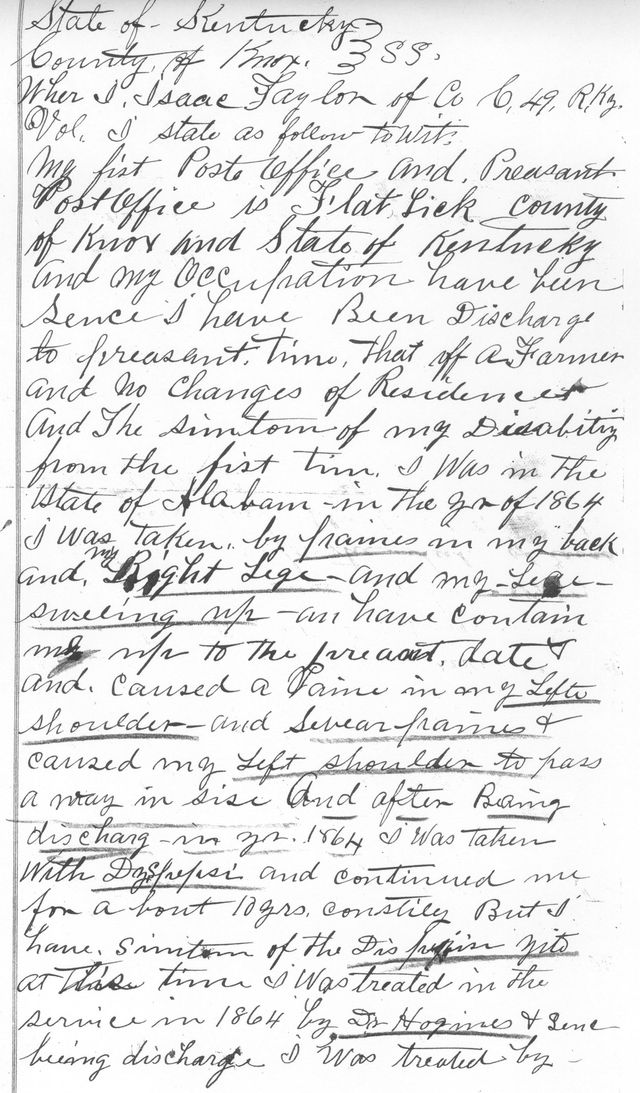 State of Kentucky
County of Knox. } SS.
Wher I, Isaac Taylor of Co C, 49, R, Ky.
Vol. I state as follow towit.
My fist Post Office and. Preasant
Post Office is Flat Lick County
of Knox and State of Kentucky
and my Occupation have been
sence I have Been Discharge
to preasant. time, that off a Farmer
and No Changes of Residence
And The simtom of my Disability
from the fist tim. I Was in the
State of Alabam - in the yr of 1864
I was taken. by paines in my back
and, my Right Lege - and my - Lege -
sweling up - an have contain
up to the preaant. date &
and. caused a Paine in my Lefte
shoulder - and Sevear paines &
caused my Left shoulder to pass
a way in sise And after Being
discharg - in yr. 1864 I was taken
With Dyspepsi and continued me
for a bout 10 yrs. constily But I
have. Simtom of the yito
at this time I Was treated in the
service in 1864 by Dr Hogines & Senc
being discharge I Was treated by -